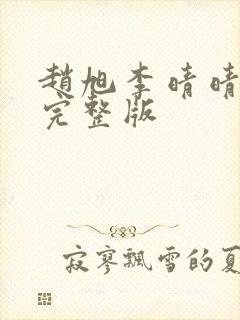 趙旭李晴晴
完整版
寂寥飄雪的夏